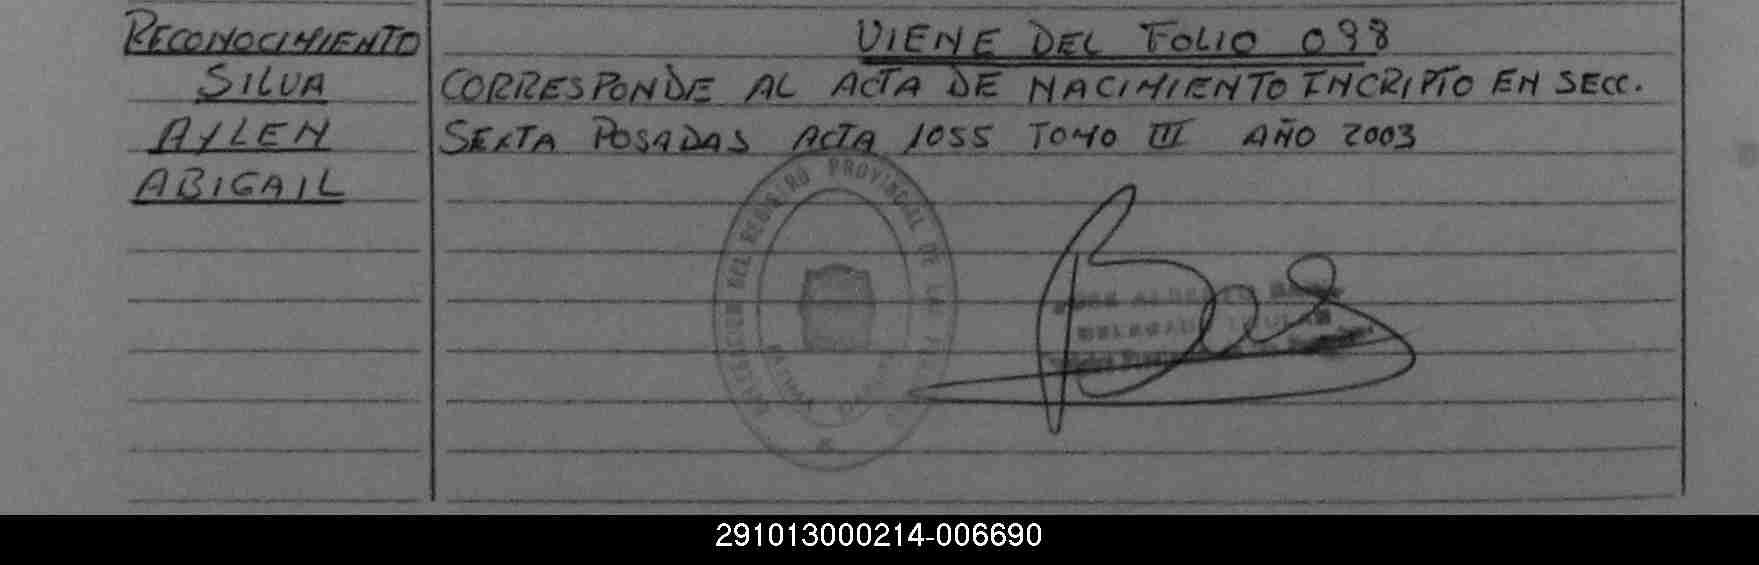 RECONOCIMIENTO
SILVA
AYLEN
ABIGAIL
VIENE DEL FOLIO 098
CORRESPONDE AL ACTA DE NACIMIENTO INCRIPTO EN SECC.
SEXTA POSADAS ACTA 1055 TOMO III AÑO 2003
DEL REGISTRO PROVINCIAL DE LAS
291013000214-006690